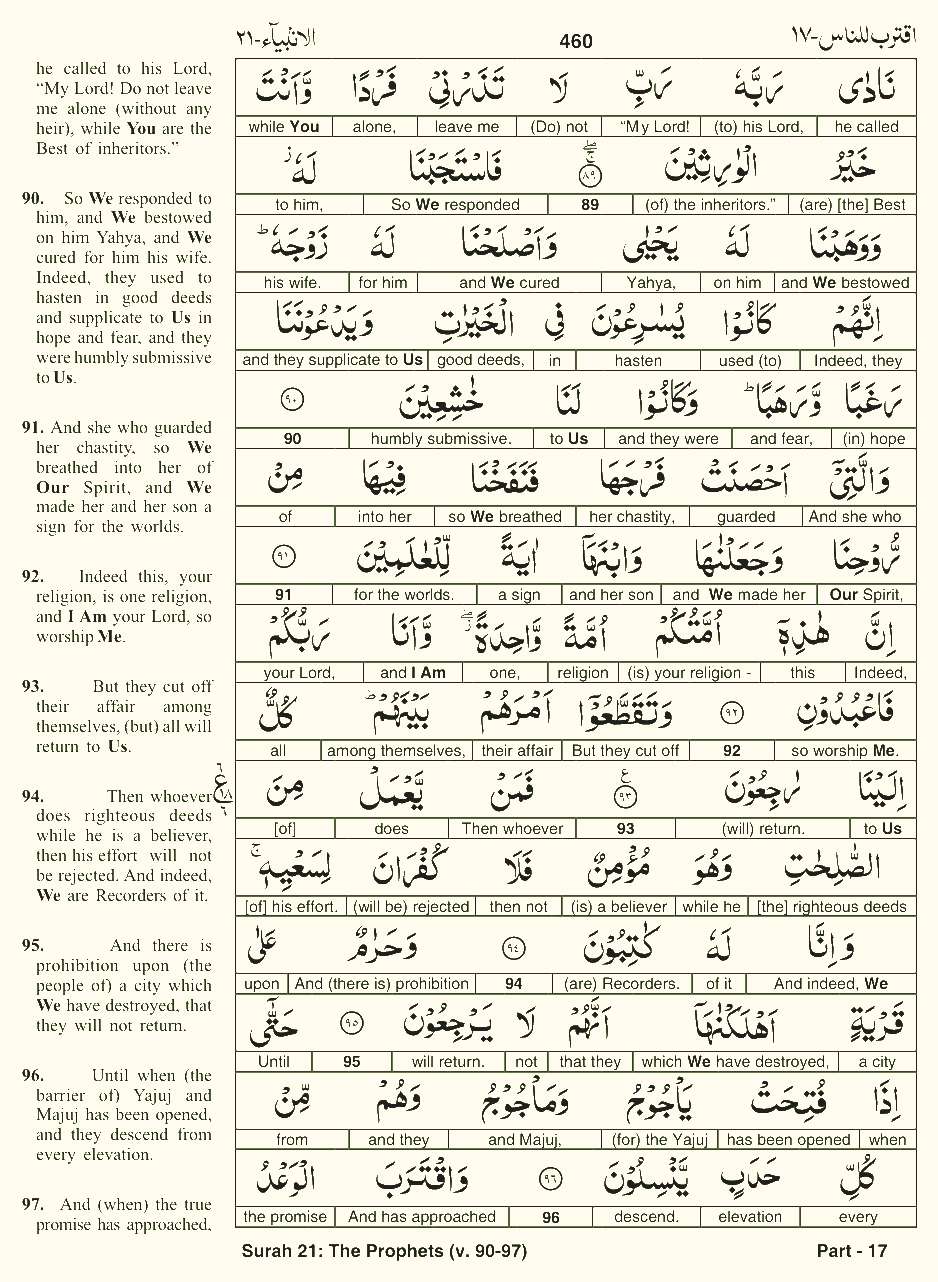 الانبیآء-٢١
460
اقترب للناس-١٧
he called to his Lord,
“My Lord! Do not leave
me alone (without any
heir), while You are the
Best of inheritors.”
90. So We responded to
him, and We bestowed
on him Yahya, and We
cured for him his wife.
Indeed, they used to
hasten in good deeds
and supplicate to Us in
hope and fear, and they
were humbly submissive
to Us.
91. And she who guarded
her chastity, so We
breathed into her of
Our Spirit, and We
made her and her son a
sign for the worlds.
92. Indeed this, your
religion, is one religion,
and I Am your Lord, so
worship Me.
93. But they cut off
their affair among
themselves, (but) all will
return to Us.
94. Then whoever
does righteous deeds
while he is a believer,
then his effort will not
be rejected. And indeed,
We are Recorders of it.
95. And there is
prohibition upon (the
people of) a city which
We have destroyed, that
they will not return.
96. Until when (the
barrier of) Yajuj and
Majuj has been opened,
and they descend from
every elevation.
97. And (when) the true
promise has approached,
نَادٰى رَبَّهٗ رَبِّ لَا تَذَرْنِىْ فَرْدًا وَّاَنْتَ
while You alone, leave me (Do) not “My Lord! (to) his Lord, he called
خَيْرُ الْوٰرِثِيْنَ ۖۚ ٨٩ فَاسْتَجَبْنَا لَهٗ ز
to him, So We responded 89 (of) the inheritors.” (are) [the] Best
وَوَهَبْنَا لَهٗ يَحْيٰى وَاَصْلَحْنَا لَهٗ زَوْجَهٗ ؕ
his wife. for him and We cured Yahya, on him and We bestowed
اِنَّهُمْ كَانُوْا يُسٰرِعُوْنَ فِى الْخَيْرٰتِ وَيَدْعُوْنَنَا
and they supplicate to Us good deeds, in hasten used (to) Indeed, they
رَغَبًا وَّرَهَبًا ؕ وَكَانُوْا لَنَا خٰشِعِيْنَ ٩٠
90 humbly submissive. to Us and they were and fear, (in) hope
وَالَّتِىْٓ اَحْصَنَتْ فَرْجَهَا فَنَفَخْنَا فِيْهَا مِنْ
of into her so We breathed her chastity, guarded And she who
رُّوْحِنَا وَجَعَلْنٰهَا وَابْنَهَآ اٰيَةً لِّلْعٰلَمِيْنَ ٩١
91 for the worlds. a sign and her son and We made her Our Spirit,
اِنَّ هٰذِهٖٓ اُمَّتُكُمْ اُمَّةً وَّاحِدَةً ۖز وَّاَنَا رَبُّكُمْ
your Lord, and I Am one, religion (is) your religion - this Indeed,
فَاعْبُدُوْنِ ٩٢ وَتَقَطَّعُوْٓا اَمْرَهُمْ بَيْنَهُمْ ؕ كُلٌّ
all among themselves, their affair But they cut off 92 so worship Me.
اِلَيْنَا رٰجِعُوْنَ ع ٩٣ فَمَنْ يَّعْمَلْ مِنَ
٦ ع ١٨ ٦
[of] does Then whoever 93 (will) return. to Us
الصّٰلِحٰتِ وَهُوَ مُؤْمِنٌ فَلَا كُفْرَانَ لِسَعْيِهٖ ۚ
[of] his effort. (will be) rejected then not (is) a believer while he [the] righteous deeds
وَاِنَّا لَهٗ كٰتِبُوْنَ ٩٤ وَحَرٰمٌ عَلٰى
upon And (there is) prohibition 94 (are) Recorders. of it And indeed, We
قَرْيَةٍ اَهْلَكْنٰهَآ اَنَّهُمْ لَا يَرْجِعُوْنَ ٩٥ حَتّٰٓى
Until 95 will return. not that they which We have destroyed, a city
اِذَا فُتِحَتْ يَاْجُوْجُ وَمَاْجُوْجُ وَهُمْ مِّنْ
from and they and Majuj, (for) the Yajuj has been opened when
كُلِّ حَدَبٍ يَّنْسِلُوْنَ ٩٦ وَاقْتَرَبَ الْوَعْدُ
the promise And has approached 96 descend. elevation every
Surah 21: The Prophets (v. 90-97)
Part - 17